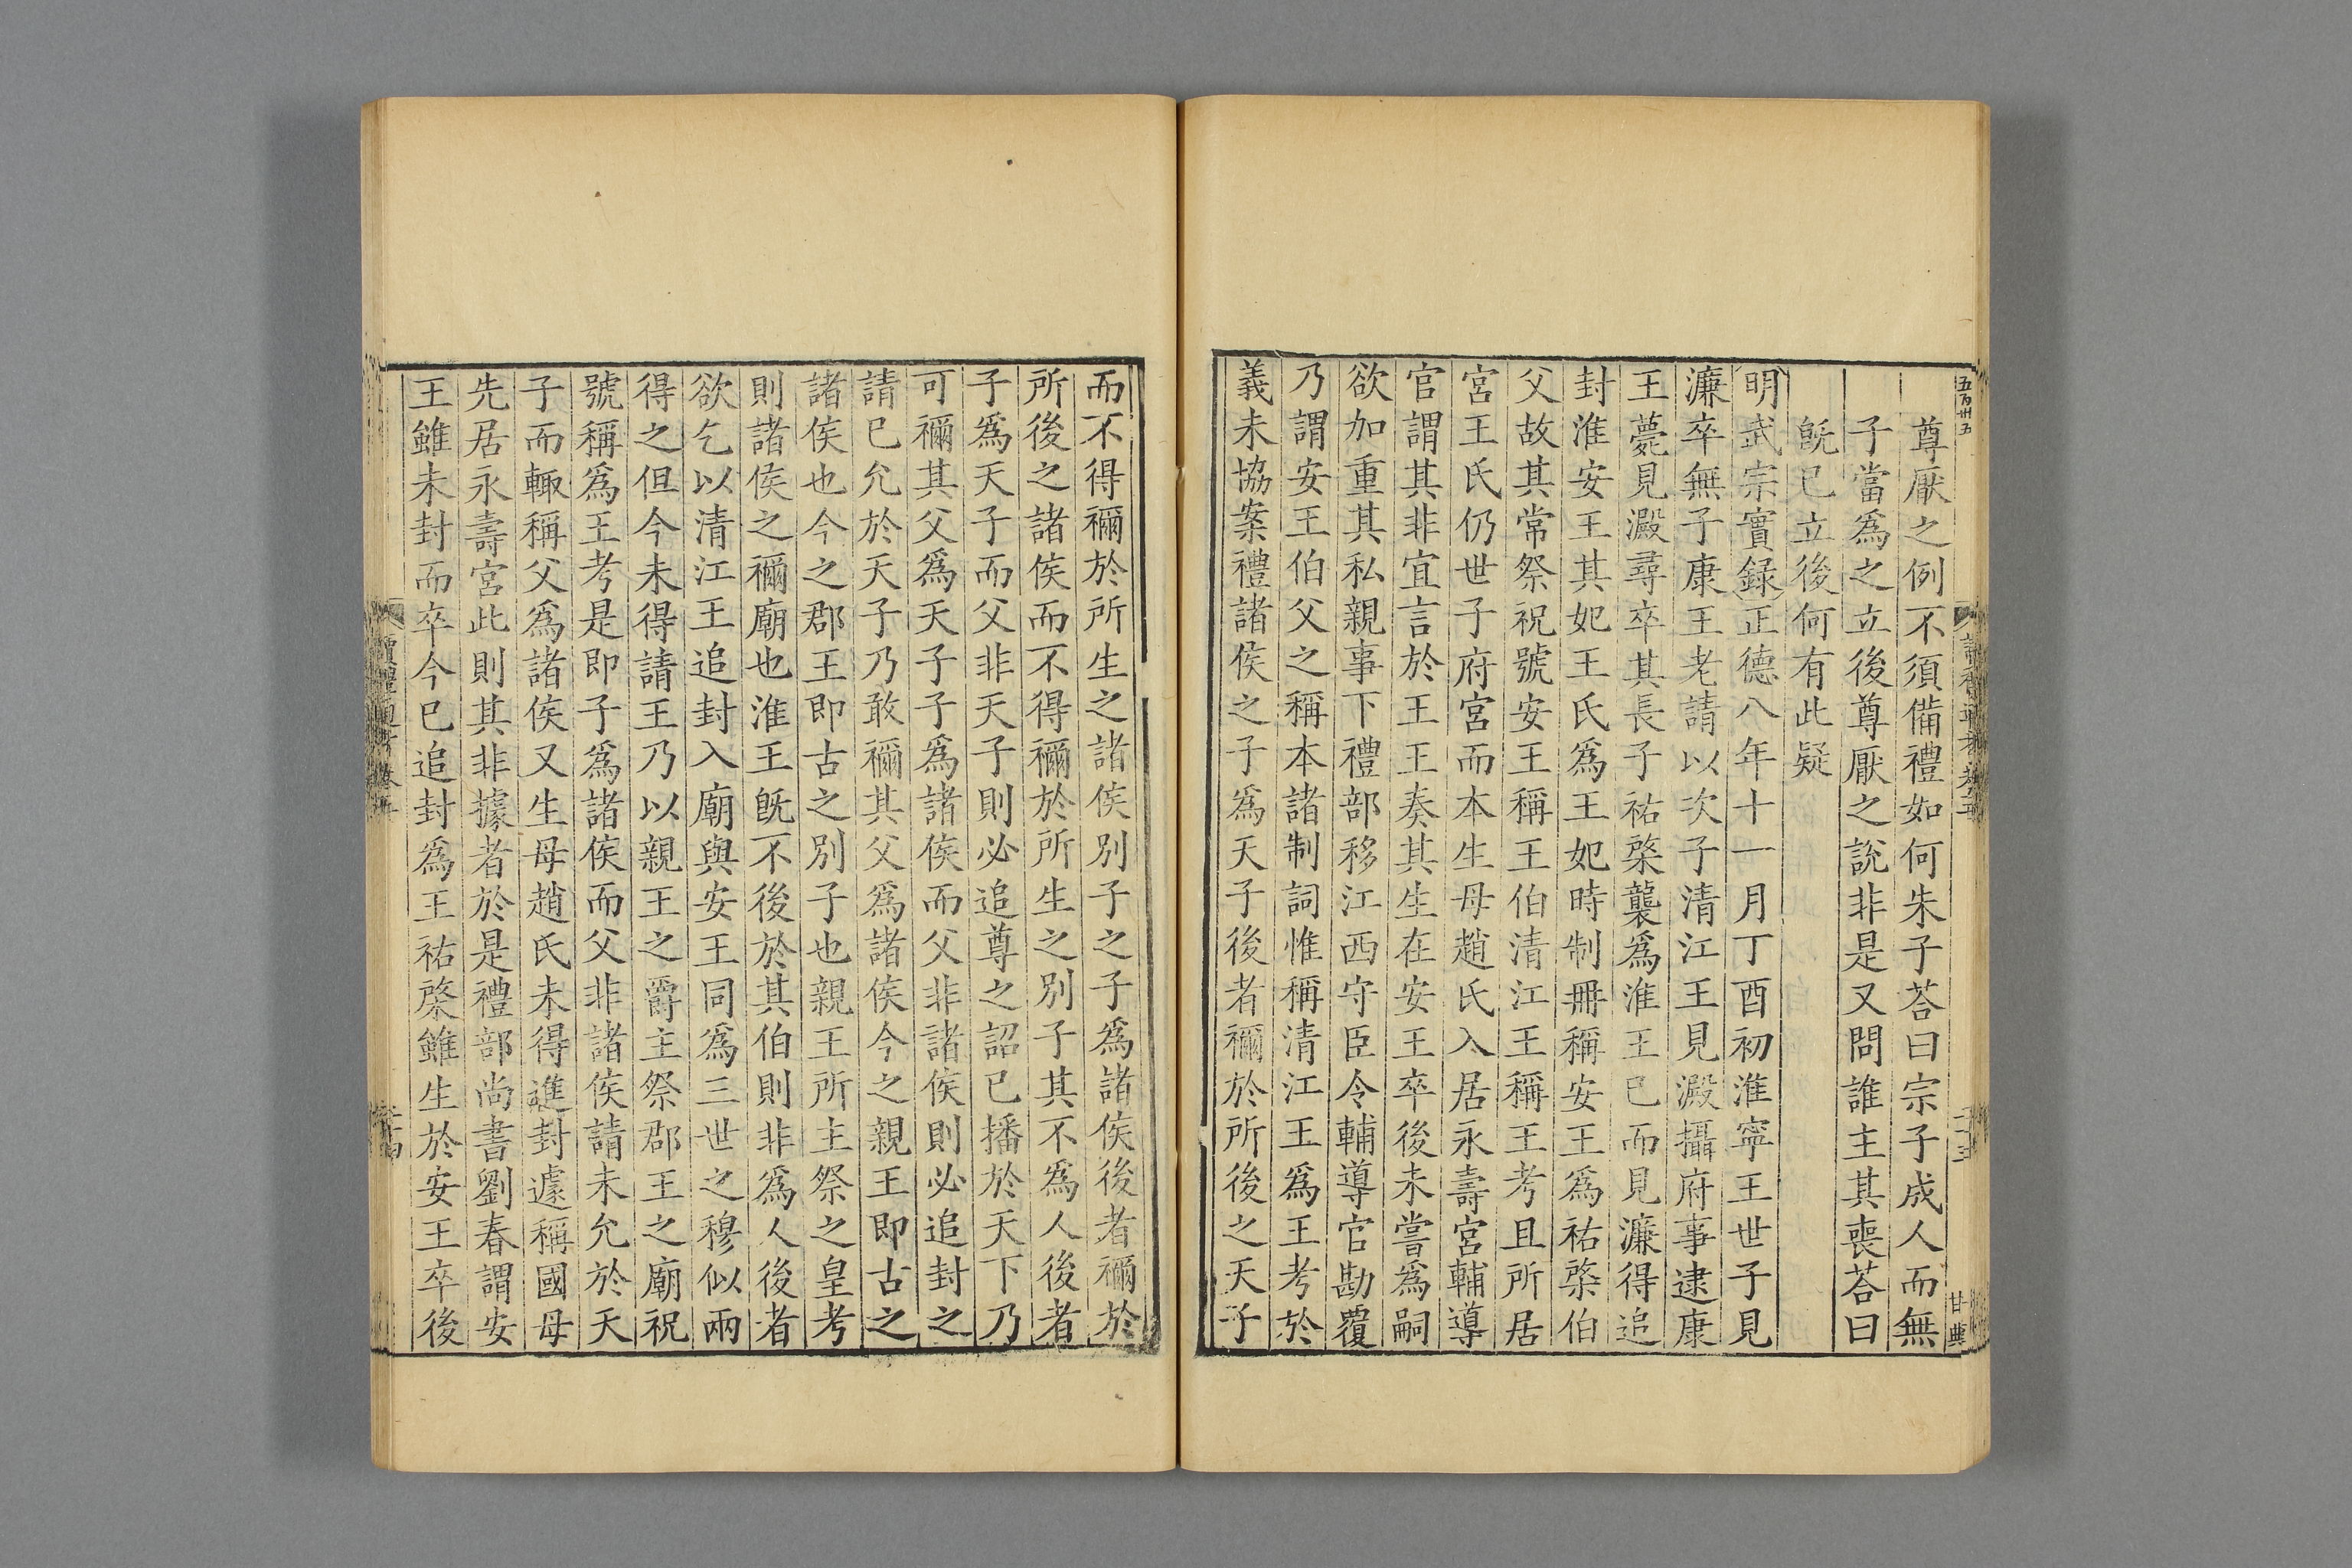 五百卅五
尊厭之例不須備禮如何朱子荅曰宗子成人而無
子當爲之立後尊厭之說非是又問誰主其喪荅曰
旣已立後何有此疑
明武宗實錄正德八年十一月丁酉初淮寧王世子見
濂卒無子康王老請以次子清江王見澱攝府事逮康
王薨見澱尋卒其長子祐棨襲爲淮王已而見濂得追
封淮安王其妃王氏爲王妃時制冊稱安王爲祐棨伯
父故其常祭祝號安王稱王伯清江王稱王考且所居
宮王氏仍世子府宮而本生母趙氏入居永壽宮輔導
官謂其非宜言於王王奏其生在安王卒後未嘗爲嗣
欲加重其私親事下禮部移江西守臣令輔導官勘覆
乃謂安王伯父之稱本諸制詞惟稱清江王爲王考於
義未協案禮諸侯之子爲天子後者禰於所後之天子
而不得禰於所生之諸侯別子之子爲諸侯後者禰於
所後之諸侯而不得禰於所生之別子其不爲人後者
子爲天子而父非天子則必追尊之詔已播於天下乃
可禰其父爲天子子爲諸侯而父非諸侯則必追封之
請已允於天子乃敢禰其父爲諸侯今之親王即古之
諸侯也今之郡王即古之別子也親王所主祭之皇考
則諸侯之禰廟也淮王旣不後於其伯則非爲人後者
欲乞以清江王追封入廟與安王同爲三世之穆似兩
得之但今未得請王乃以親王之爵主祭郡王之廟祝
號稱爲王考是即子爲諸侯而父非諸侯請未允於天
子而輙稱父爲諸侯又生母趙氏未得進封遽稱國母
先居永壽宮此則其非據者於是禮部尚書劉春謂安
王雖未封而卒今已追封爲王祐棨雖生於安王卒後